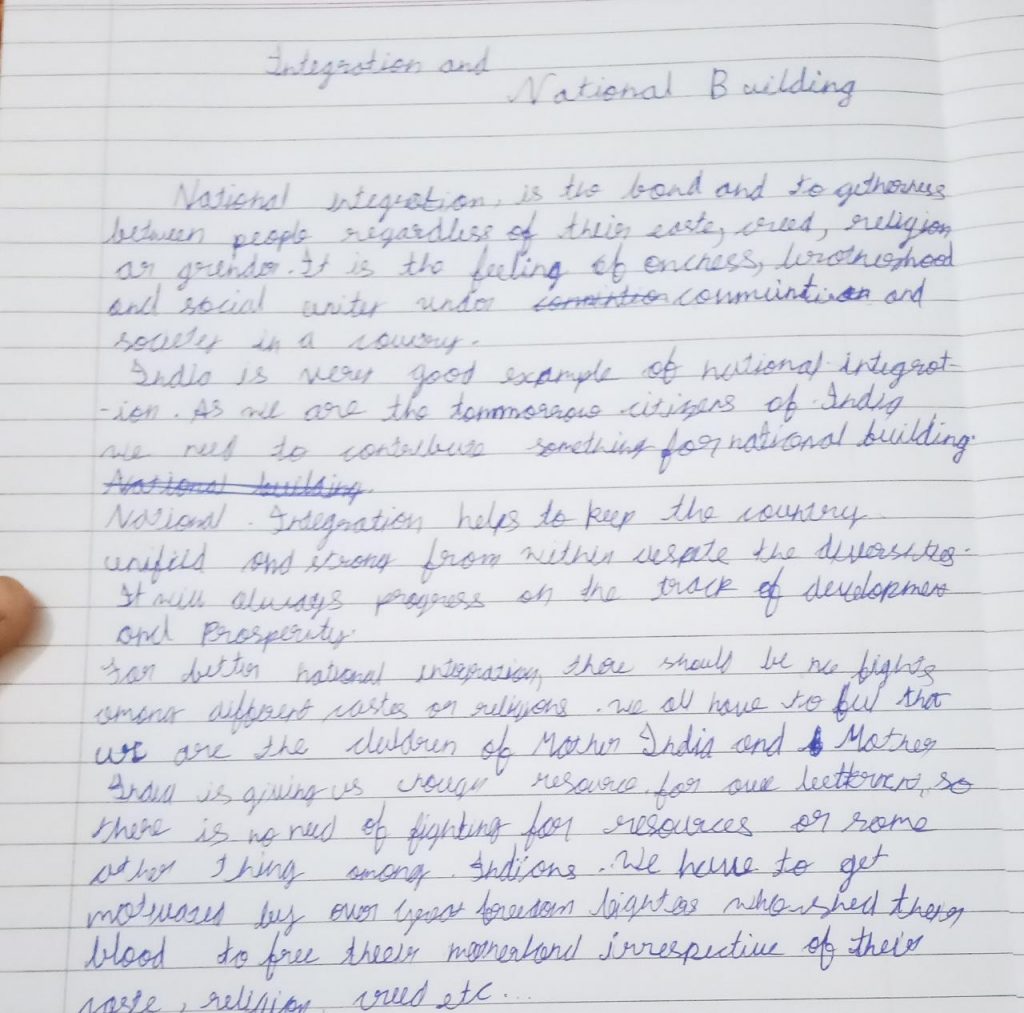 Integration and
National Building
National integration, is the bond and to getherness
between people regardless of their caste, creed, religion
or grender. It is the feeling of oneness, brotherhood
and social unity under communtion communtion and
society in a country.
India is very good example of national integrat-
-ion. As we are the tommorrow citizens of India
we need to contribute something for national building.
National building.
National Integration helps to keep the country
unifild and strong from within despite the diversities.
It will always progress on the track of development
and Prosperity.
For better national integration, there should be no fights
among different castes or religions. we all have to feel that
we are the children of Mother India and Mother
India is giving us enough resource for our betterment, so
there is no need of fighting for resources or some
other thing among Indians. We have to get
motivated by our great freedom fighters who shed their
blood to free their motherland irrespective of their
caste, religion, creed etc...